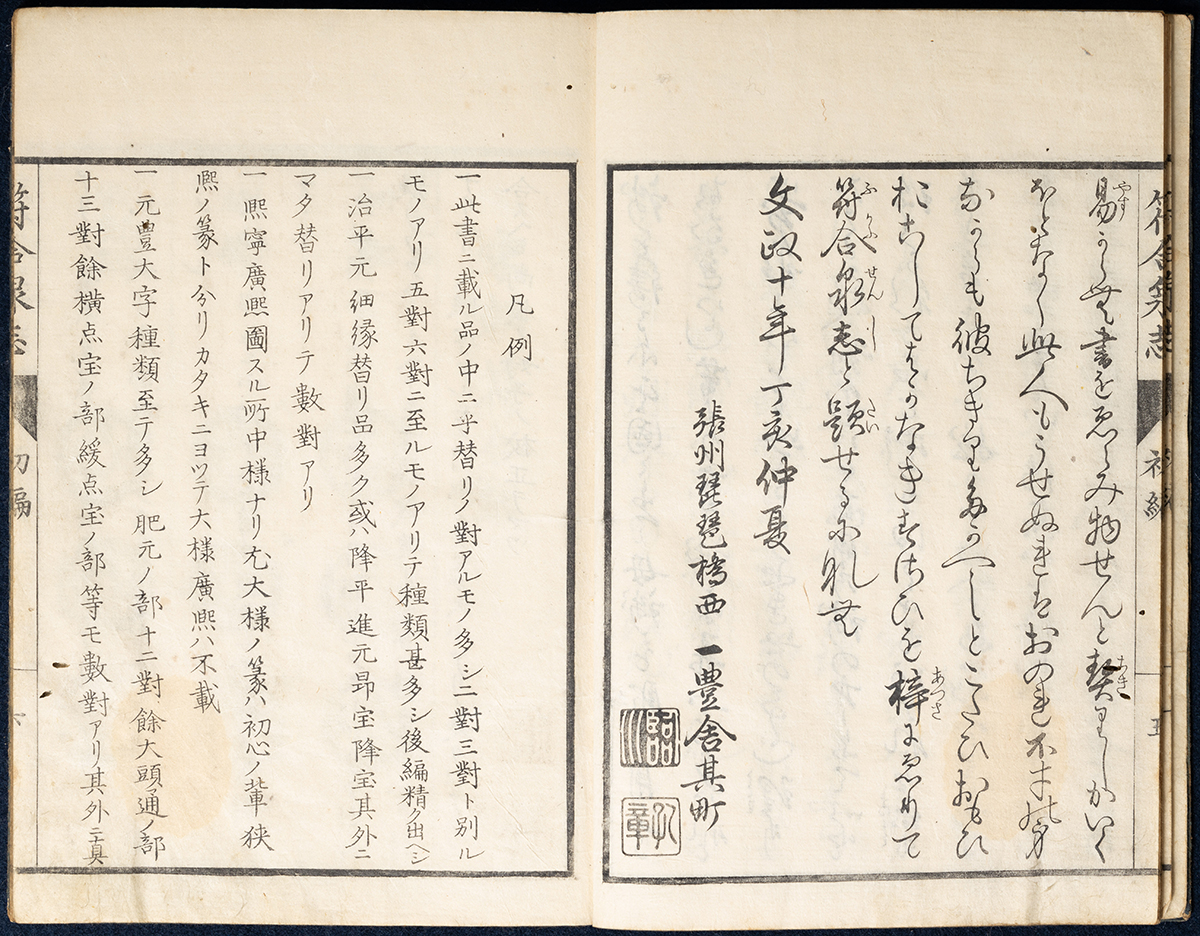 易からむ書をゑらみ物せんと契りしかいく
ほとなく此人もうせぬれはおのれ不才の身
なからも彼ちきりたかへしとこたひおもひ
おこしてはかなきすさひを梓にゑりて
符合泉志と題せるになむ
文政十年丁亥仲夏
張州琵琶橋西 一豊舎其町
凡例
一此書ニ載ル品ノ中ニ半替リノ對アルモノ多シ二對三對ト別ル
モノアリ五對六對ニ至ルモノアリテ種類甚多シ後編精ク出ヘシ
一治平元細縁替リ品多ク或ハ降平進元昻宝降宝其外ニ
マタ替リアリテ數對アリ
一熈寧廣熈圖スル所中様ナリ尤大様ノ篆ハ初心ノ輩狭
熈ノ篆ト分リカタキニヨツテ大様廣熈ハ不載
一元豊大字種類至テ多シ肥元ノ部十二對餘大頭通ノ部
十三對餘横点宝ノ部緩点宝ノ部等モ數對アリ其外ニ真